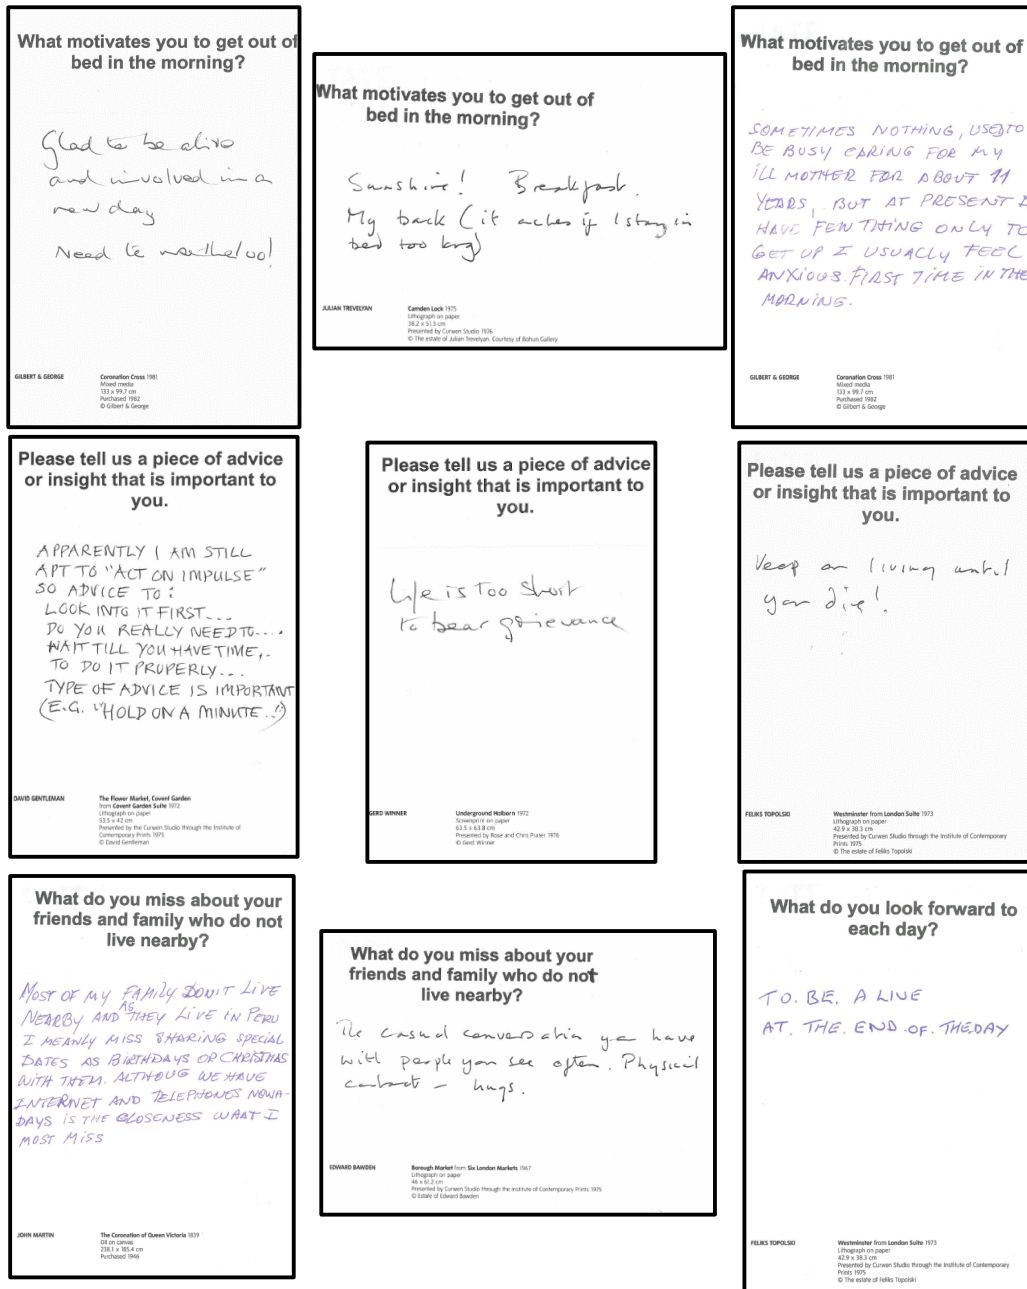 What motivates you to get out of
bed in the morning?
Glad to be alive
and involved in a
new day
Need to
GILBERT & GEORGE
Coronation Cross 1981
Mixed media
133 x 99.7 cm
Purchased 1982
© Gilbert & George
What motivates you to get out of
bed in the morning?
Sunshine! Breakfast.
My back (it aches if I stay in
bed too long)
JULIAN TREVELYAN
Camden Lock 1975
Lithograph on paper
38.2 x 51.3 cm
Presented by Curwen Studio 1976
© The estate of Julian Trevelyan. Courtesy of Bohun Gallery
What motivates you to get out of
bed in the morning?
SOMETIMES NOTHING, USED TO
BE BUSY CARING FOR MY
ILL MOTHER FOR ABOUT 11
YEARS, BUT AT PRESENT I
HAVE FEW THING ONLY TO
GET UP I USUALLY FEEL
ANXIOUS. FIRST TIME IN THE
MORNING.
GILBERT & GEORGE
Coronation Cross 1981
Mixed media
133 x 99.7 cm
Purchased 1982
© Gilbert & George
Please tell us a piece of advice
or insight that is important to
you.
APPARENTLY I AM STILL
APT TO "ACT ON IMPULSE"
SO ADVICE TO:
LOOK INTO IT FIRST...
DO YOU REALLY NEED TO....
WAIT TILL YOU HAVE TIME,..
TO DO IT PROPERLY...
TYPE OF ADVICE IS IMPORTANT
(E.G. "HOLD ON A MINUTE..!")
DAVID GENTLEMAN
The Flower Market, Covent Garden
from Covent Garden Suite 1972
Lithograph on paper
53.5 x 42 cm
Presented by the Curwen Studio through the Institute of
Contemporary Prints 1975
© David Gentleman
Please tell us a piece of advice
or insight that is important to
you.
Life is too short
to bear grievance
GERD WINNER
Underground Holborn 1972
Screenprint on paper
63.5 x 63.8 cm
Presented by Rose and Chris Prater 1976
© Gerd Winner
Please tell us a piece of advice
or insight that is important to
you.
Keep on living until
you die!
FELIKS TOPOLSKI
Westminster from London Suite 1973
Lithograph on paper
42.9 x 38.3 cm
Presented by Curwen Studio through the Institute of Contemporary
Prints 1975
© The estate of Feliks Topolski
What do you miss about your
friends and family who do not
live nearby?
MOST OF MY FAMILY DON'T LIVE
NEARBY AND AS THEY LIVE IN PERU
I MEANLY MISS SHARING SPECIAL
DATES AS BIRTHDAYS OR CHRISTMAS
WITH THEM. ALTHOUG WE HAVE
INTERNET AND TELEPHONES NOWA-
DAYS IS THE CLOSENESS WHAT I
MOST MISS
JOHN MARTIN
The Coronation of Queen Victoria 1839
Oil on canvas
238.1 x 185.4 cm
Purchased 1946
What do you miss about your
friends and family who do not
live nearby?
The casual conversation you have
with people you see often. Physical
contact - hugs.
EDWARD BAWDEN
Borough Market from Six London Markets 1967
Lithograph on paper
46 x 61.2 cm
Presented by Curwen Studio through the Institute of Contemporary Prints 1975
© Estate of Edward Bawden
What do you look forward to
each day?
TO. BE. A LIVE
AT. THE. END. OF. THE DAY
FELIKS TOPOLSKI
Westminster from London Suite 1973
Lithograph on paper
42.9 x 38.3 cm
Presented by Curwen Studio through the Institute of Contemporary
Prints 1975
© The estate of Feliks Topolski